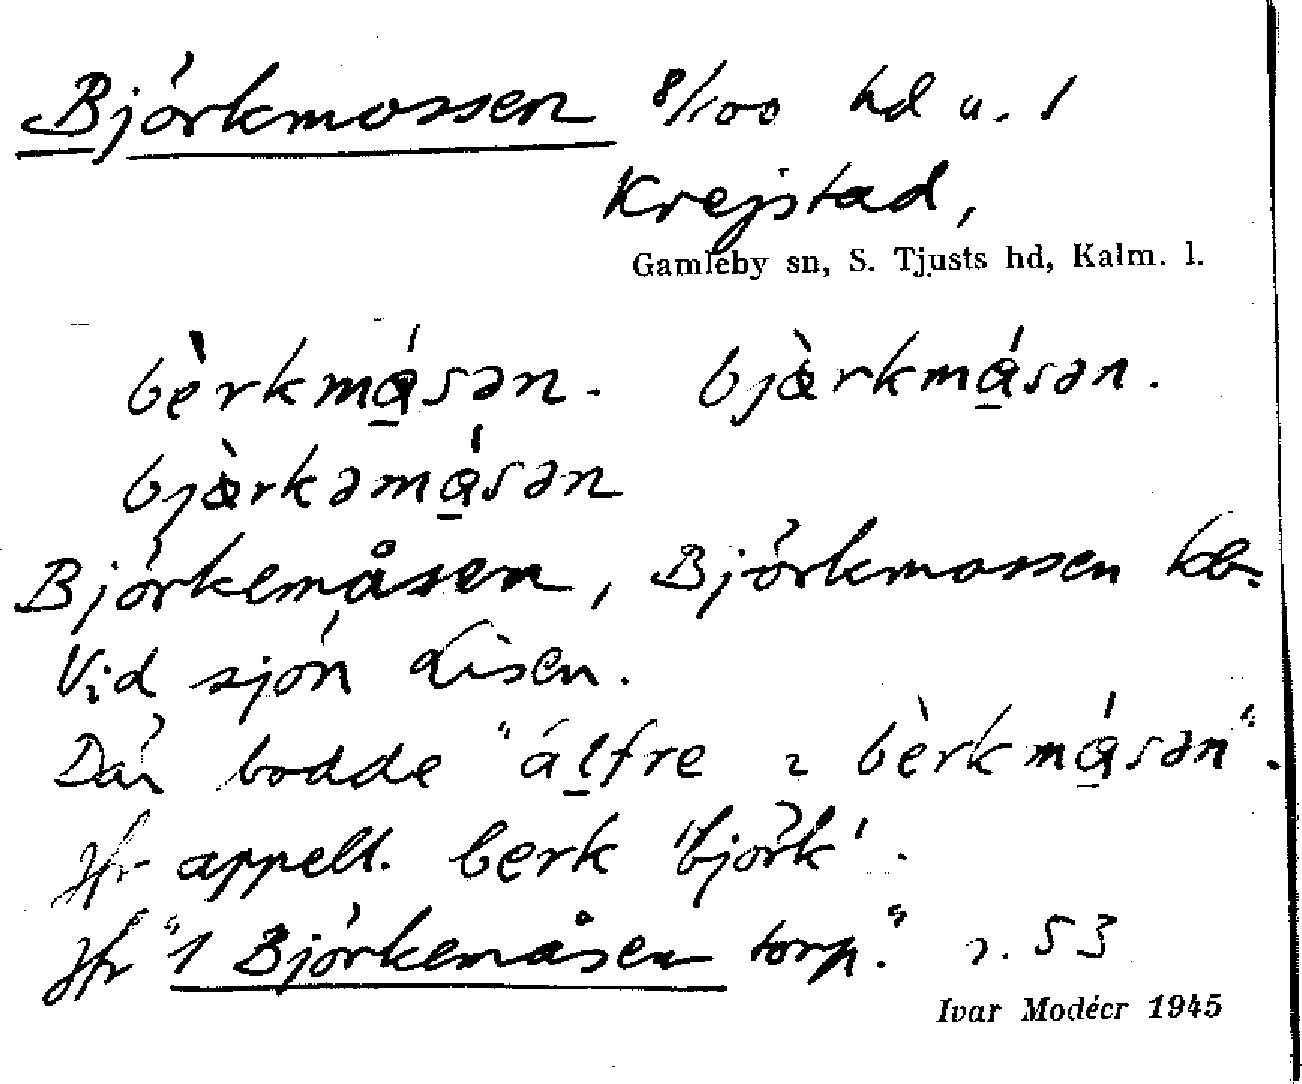 Björkmossen 8/100 hd u. 1
Krejstad,
Gamleby sn, S. Tjusts hd, Kalm. l.
bèrkmá̱sən. bjæ̀rkmá̱sən.
bjæ̀rkəmá̱sən
Björkemåsen, Björkmossen
Vid sjön Lisen.
Där bodde "álfre ɩ bèrkmá̱sən".
Jfr appell. berk 'björk'.
Jfr "1 Björkemåsen torp." r. 53
Ivar Modéer 1945